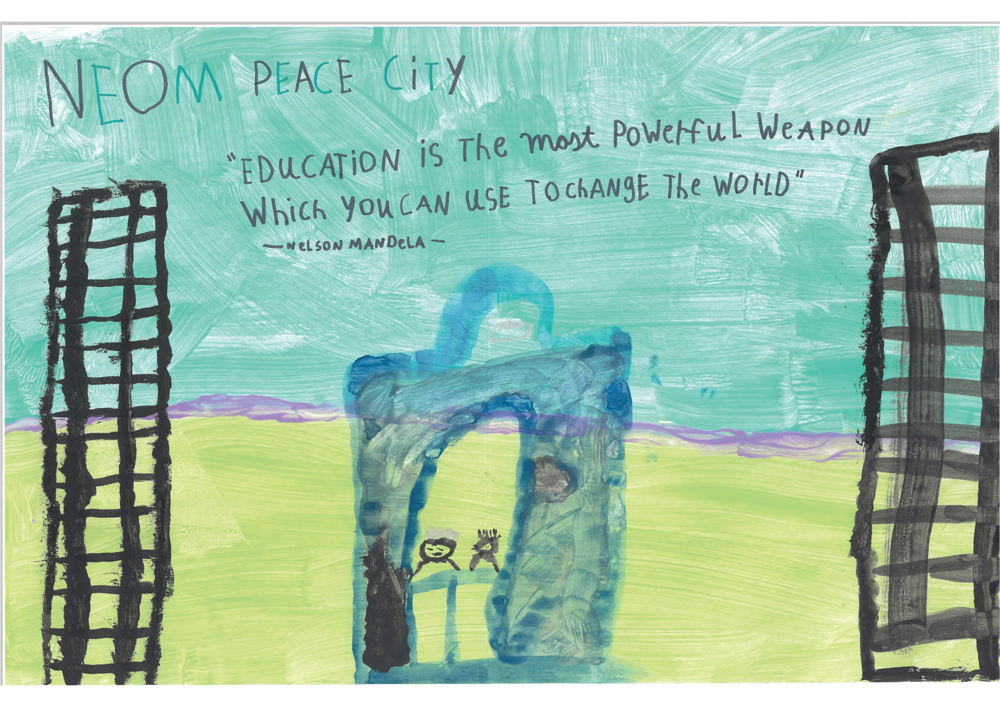 NEOM PEACE CiTY
"EDUCATiON iS THe most PoWerfuL WeAPON
Which YOU CAN USE TO chANGE The WOrLD"
— NeLSON MANDeLA —